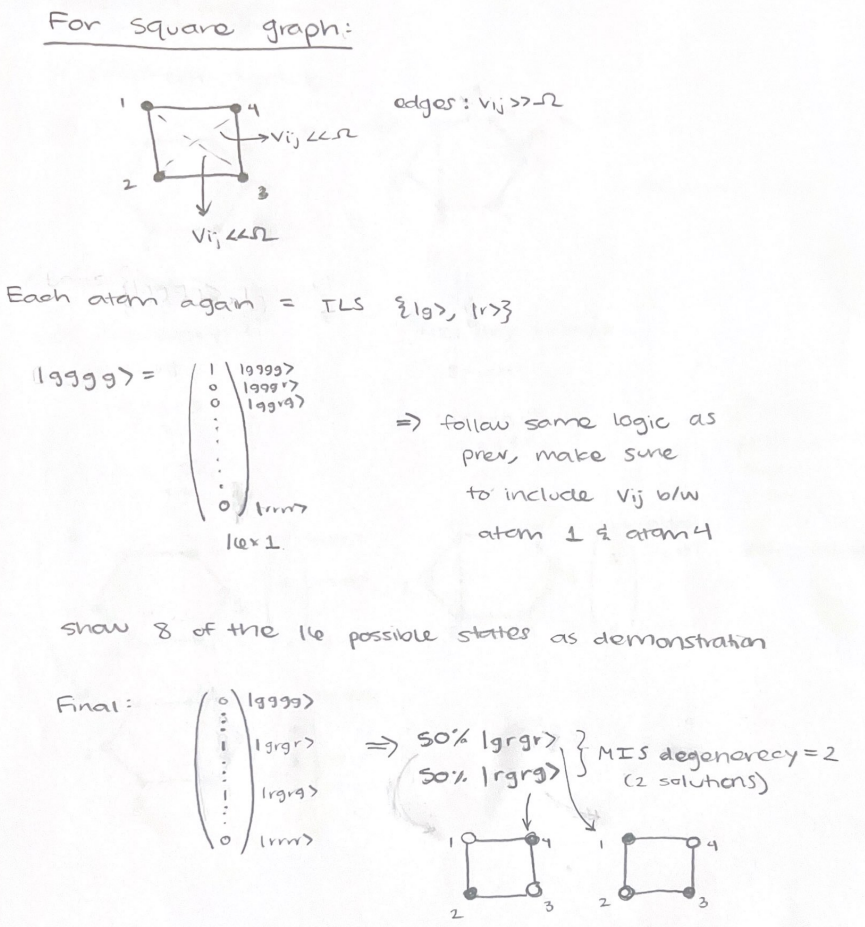 For square graph:
1 4
edges: Vij >> Ω
→ Vij << Ω
2 3
Vij << Ω
Each atom again = ILS {|g>, |r>}
|gggg> = ( 1 |gggg>
0 |gggr>
0 |ggrg>
0 ) |rrrr>
16×1
=> follow same logic as
prev, make sure
to include Vij b/w
atom 1 & atom 4
show 8 of the 16 possible states as demonstration
Final: ( 0 |gggg>
|grgr>
|rgrg>
0 ) |rrrr>
=> 50% |grgr>
50% |rgrg>
} MIS degenerecy = 2
(2 solutions)
1 4 1 4
2 3 2 3